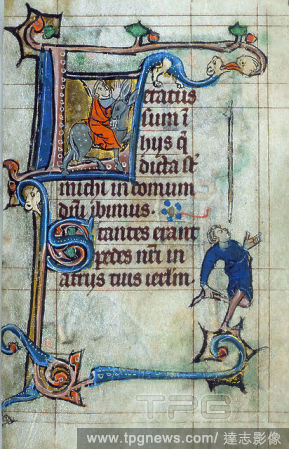 etatus
sum ī
hys q̄
dicta st̄
michi in domum
dn̄i ibimus.
Stantes erant
pedes nr̄i in
atriis tuis ierlm̄.
TPG
www.tpgnews.com/ 達志影像